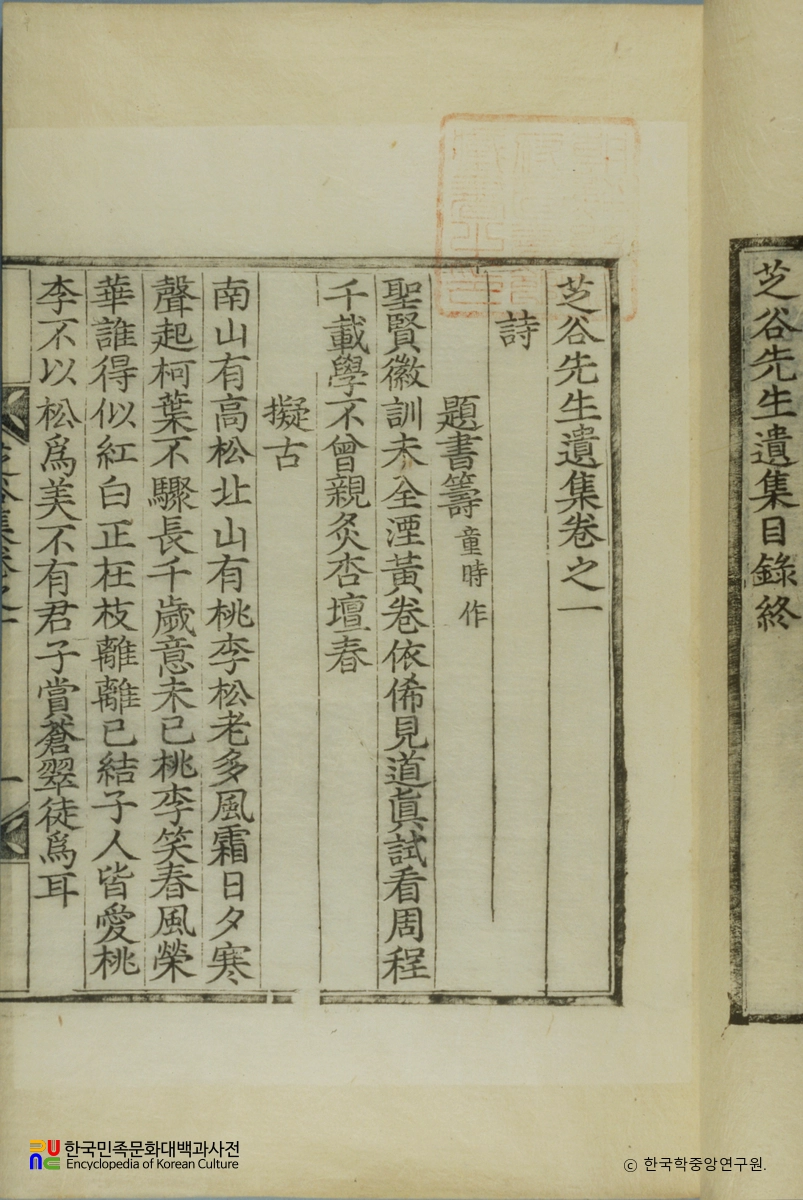 芝谷先生遺集目錄終
芝谷先生遺集卷之一
詩
題書籌 童時作
聖賢徽訓未全湮黃卷依俙見道眞試看周程
千載學不曾親炙杏壇春
擬古
南山有高松北山有桃李松老多風霜日夕寒
聲起柯葉不驟長千歲意未已桃李笑春風榮
華誰得似紅白正在枝離離已結子人皆愛桃
李不以松爲美不有君子賞蒼翠徒爲耳
芝谷集卷之一
一
한국민족문화대백과사전
Encyclopedia of Korean Culture
© 한국학중앙연구원.